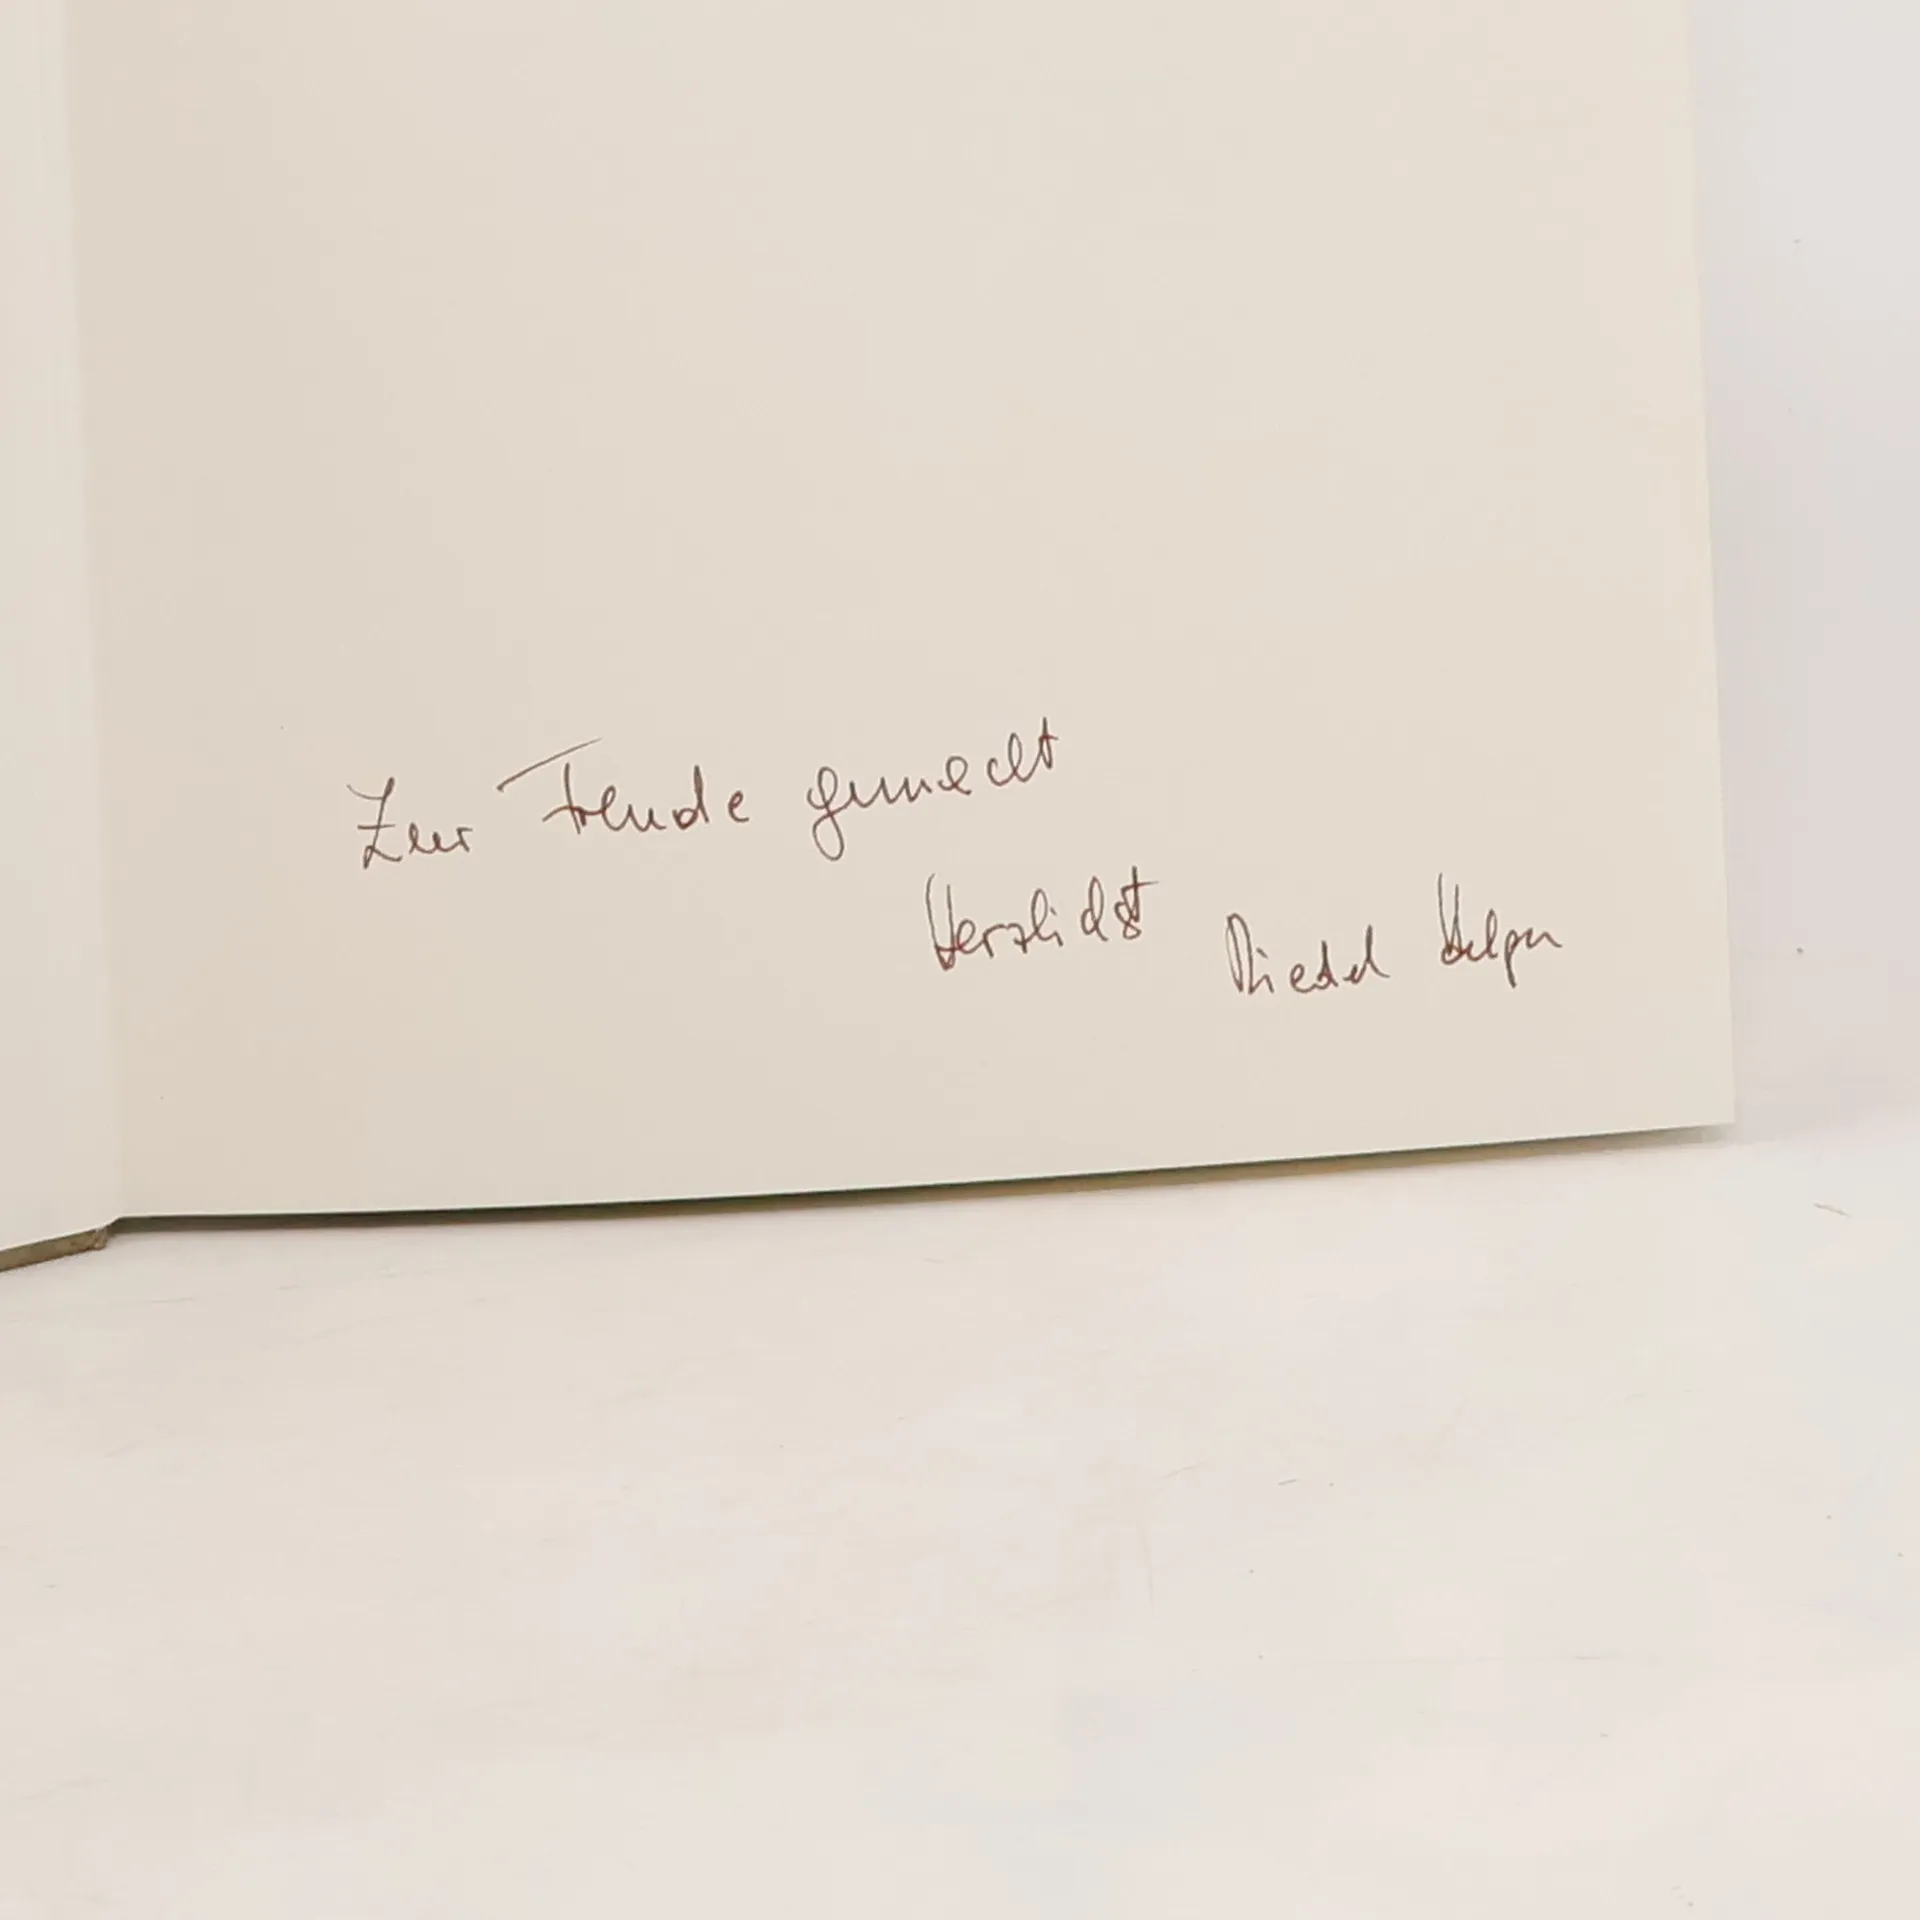 Zur Freude gemacht
Herzlichst Riedel Helga